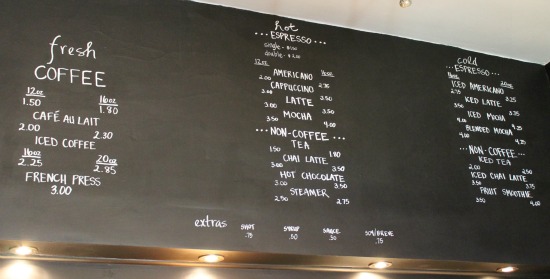 fresh
COFFEE
12oz 16oz
1.50 1.80
CAFÉ AU LAIT
2.00 2.30
ICED COFFEE
16oz 20oz
2.25 2.85
FRENCH PRESS
3.00
hot
...ESPRESSO...
single - $1.50
double - $2.00
12oz 16oz
AMERICANO
2.00 2.35
CAPPUCCINO
3.00 3.50
LATTE
3.00 3.50
MOCHA
3.50 4.00
...NON-COFFEE...
TEA
1.50 1.80
CHAI LATTE
3.00 3.50
HOT CHOCOLATE
3.00 3.50
STEAMER
2.50 2.75
cold
...ESPRESSO...
16oz 20oz
ICED AMERICANO
2.75 3.25
ICED LATTE
3.75 4.25
ICED MOCHA
4.00
BLENDED MOCHA
4.00 4.25
...NON-COFFEE...
ICED TEA
2.00 2.50
ICED CHAI LATTE
3.50
FRUIT SMOOTHIE
3.50 4.00
extras
SHOT SYRUP SAUCE SOY/BREVE
.75 .50 .50 .75